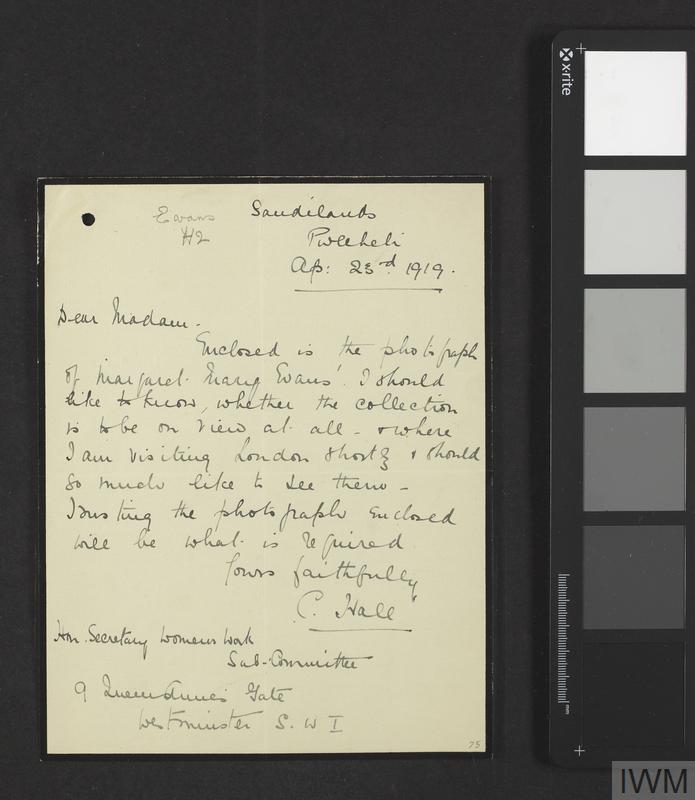 Evans
H2
Sandilands
Pwllheli
Ap: 23rd 1919.
Dear Madam.
Enclosed is the photograph
of Margaret Mary Evans'. I should
like to know, whether the collection
is to be on view at all - & where
I am visiting London shortly & should
so much like to see them -
Trusting the photograph enclosed
will be what is required
Yours faithfully
C. Hall
Hon. Secretary Womens Work
Sub-Committee
9 Queen Annes Gate
Westminster S. W I
75
x·rite
mm
IWM